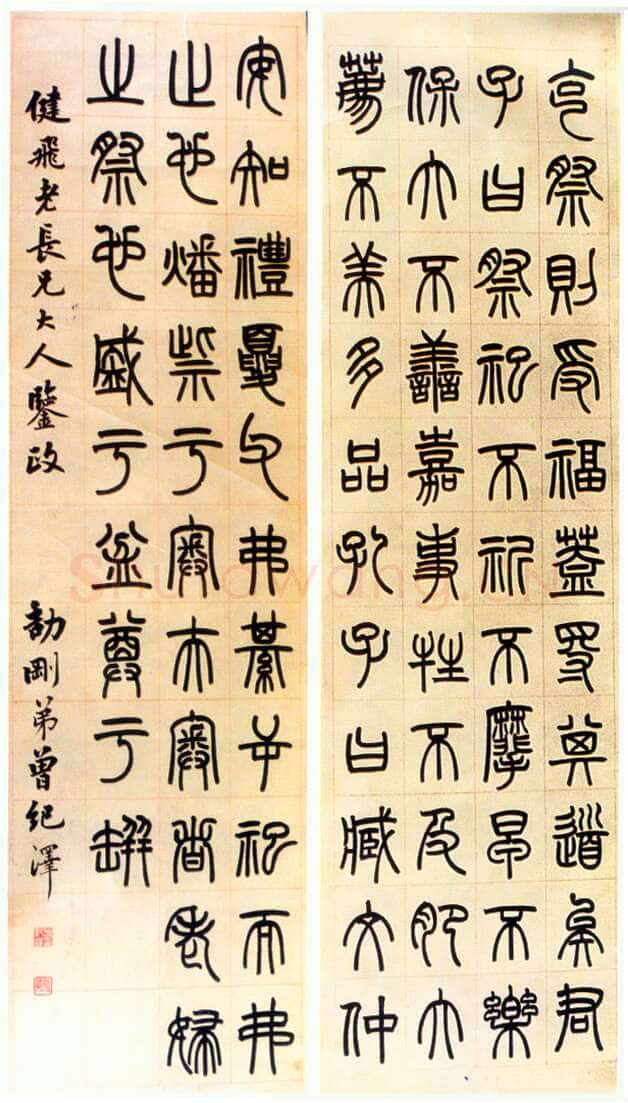 克祭則受福蓋㝵其道矣君
子曰祭祀不祈不麾早不樂
保大不善嘉事牲不及肥大
薦不美多品孔子曰臧文仲
安知禮夏父弗綦屰祀而弗
止也燔柴亏奧夫奧者老婦
之祭也盛亏盆尊亏缾
健飛老長兄大人鑒政
劼剛弟曾紀澤